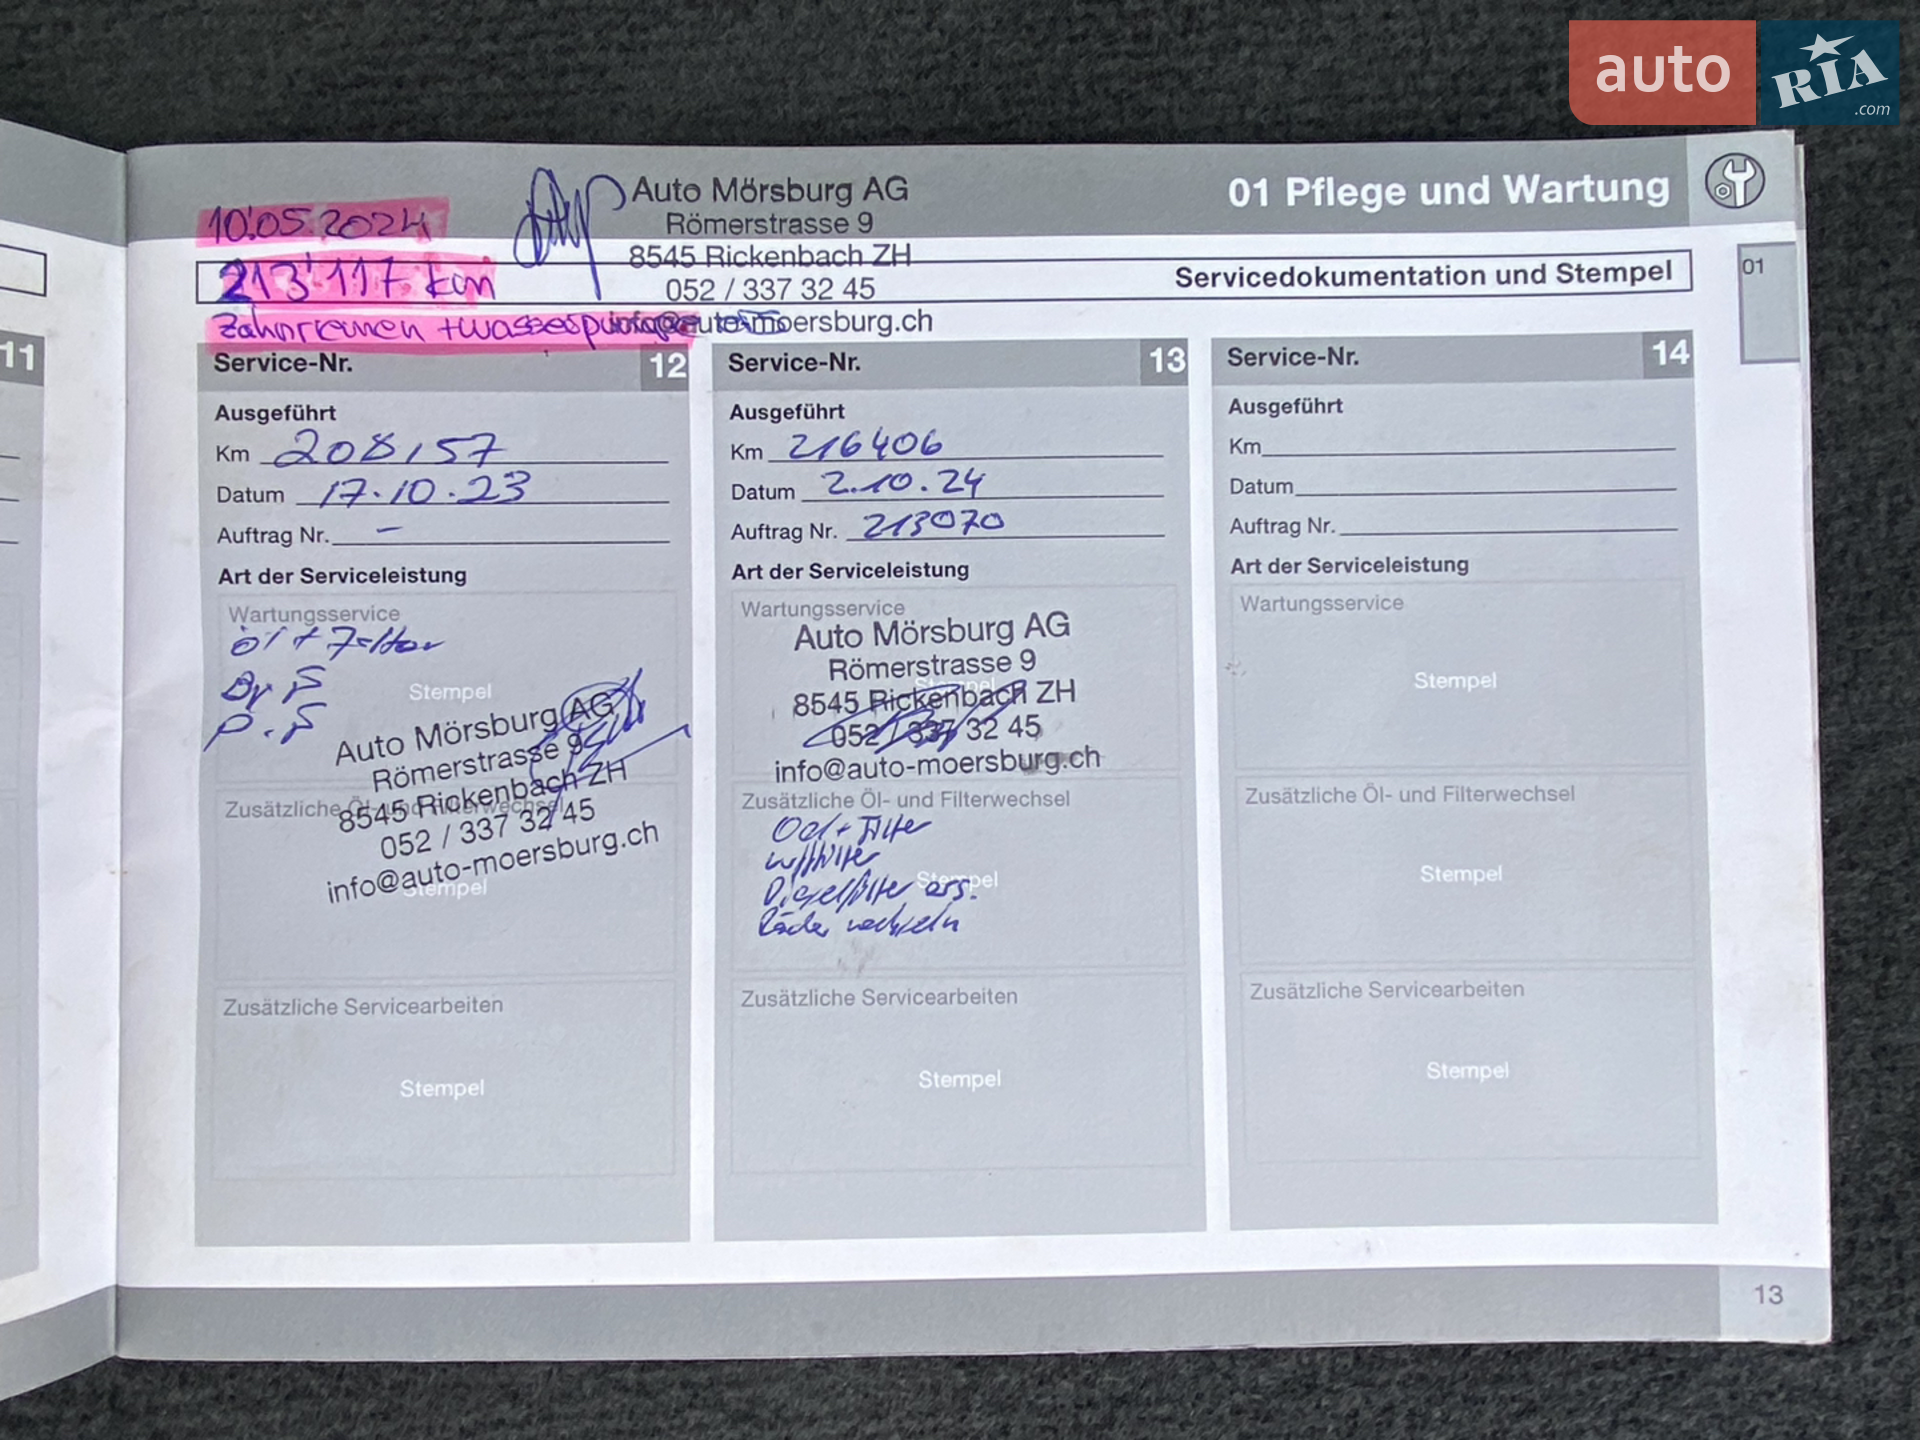 auto RIA .com
01 Pflege und Wartung
10.05.2024
Auto Mörsburg AG
Römerstrasse 9
8545 Rickenbach ZH
052 / 337 32 45
info@auto-moersburg.ch
213'117 km
Zahnriemen + Wasserpumpe
Servicedokumentation und Stempel
01
11
Service-Nr. 12
Ausgeführt
Km 208157
Datum 17.10.23
Auftrag Nr. -
Art der Serviceleistung
Wartungsservice
Öl + Filter
P.F
Stempel
Auto Mörsburg AG
Römerstrasse 9
8545 Rickenbach ZH
052 / 337 32 45
info@auto-moersburg.ch
Zusätzliche Öl- und Filterwechsel
Stempel
Zusätzliche Servicearbeiten
Stempel
Service-Nr. 13
Ausgeführt
Km 216406
Datum 2.10.24
Auftrag Nr. 213070
Art der Serviceleistung
Wartungsservice
Stempel
Auto Mörsburg AG
Römerstrasse 9
8545 Rickenbach ZH
052 / 337 32 45
info@auto-moersburg.ch
Zusätzliche Öl- und Filterwechsel
Oel + Filter
Dieselfilter ers.
Räder wechseln
Stempel
Zusätzliche Servicearbeiten
Stempel
Service-Nr. 14
Ausgeführt
Km
Datum
Auftrag Nr.
Art der Serviceleistung
Wartungsservice
Stempel
Zusätzliche Öl- und Filterwechsel
Stempel
Zusätzliche Servicearbeiten
Stempel
13